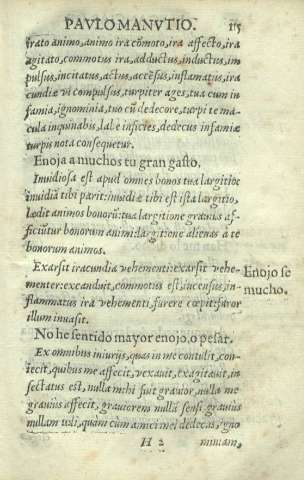 PAVLO MANVTIO. 115
trato animo, animo ira cõmoto, ira affecto, ira
agitato, commotus ira, adductus, inductus, im
pulsus, incitatus, actus, accẽsus, inflamatus, ira
cundiæ vi compulsus, turpiter ages, tua cum in
famia, ignominia, tuo cũ dedecore, turpi te ma
cula inquinabis, labẽ inficies, dedecus infamiæ
turpis nota consequetur.
Enoja a muchos tu gran gasto.
Inuidiosa est apud omnes bonos tua largitio:
inuidiã tibi parit: inuidiæ tibi est ista largitio,
lædit animos bonorũ: tua largitione grauius af-
ficiũtur bonorum animi: largitione alienas à te
bonorum animos.
Exarsit iracundia vehementi: exarsit vehe-
menter: excanduit, commotus est: accensus, in-
flammatus ira vehementi, furere cœpit: furor
illum inuasit.
Enojo se
mucho.
No he sentido mayor enojo, o pesar.
Ex omnibus iniurijs, quas in me contulit, con-
iecit, quibus me affecit, vexauit, exagitauit, in
sectatus est, nulla mihi fuit grauior, nulla me
grauius affecit, grauiorem nullã sensi, grauius
nullam tuli, quam cum amici mei dedecus, igno
H 2 miniam,